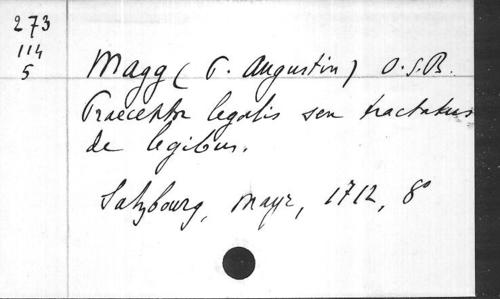 273
114
5
Magg (P. Augustin) O.S.B.
Praeceptor legalis seu tractatus
de legibus.
Salzbourg, Mayr, 1712, 8°